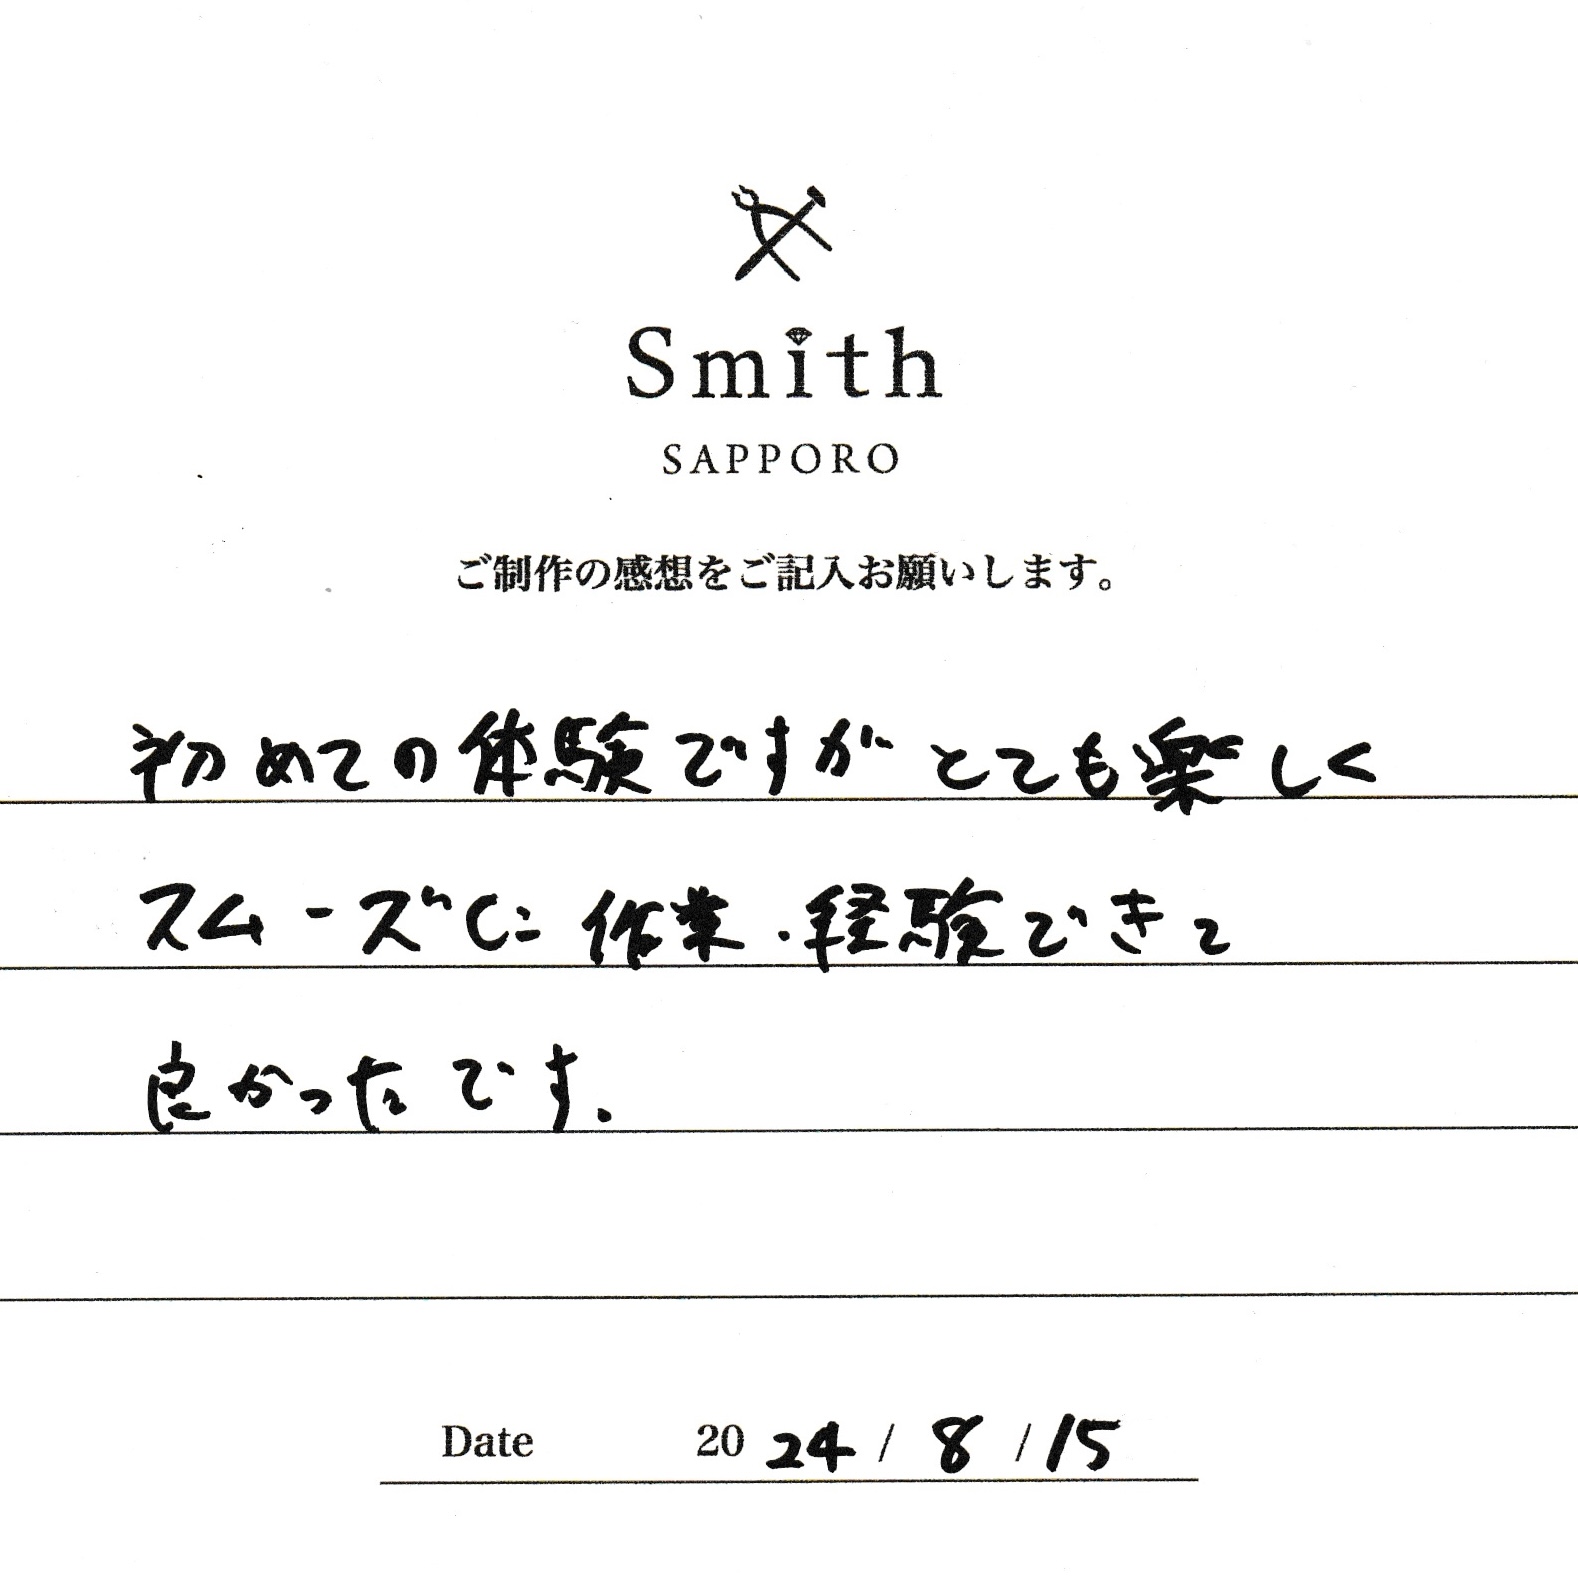 Smith
SAPPORO
ご制作の感想をご記入お願いします。
初めての体験ですがとても楽しく
スムーズに作業・経験できて
良かったです.
Date 2024 / 8 / 15